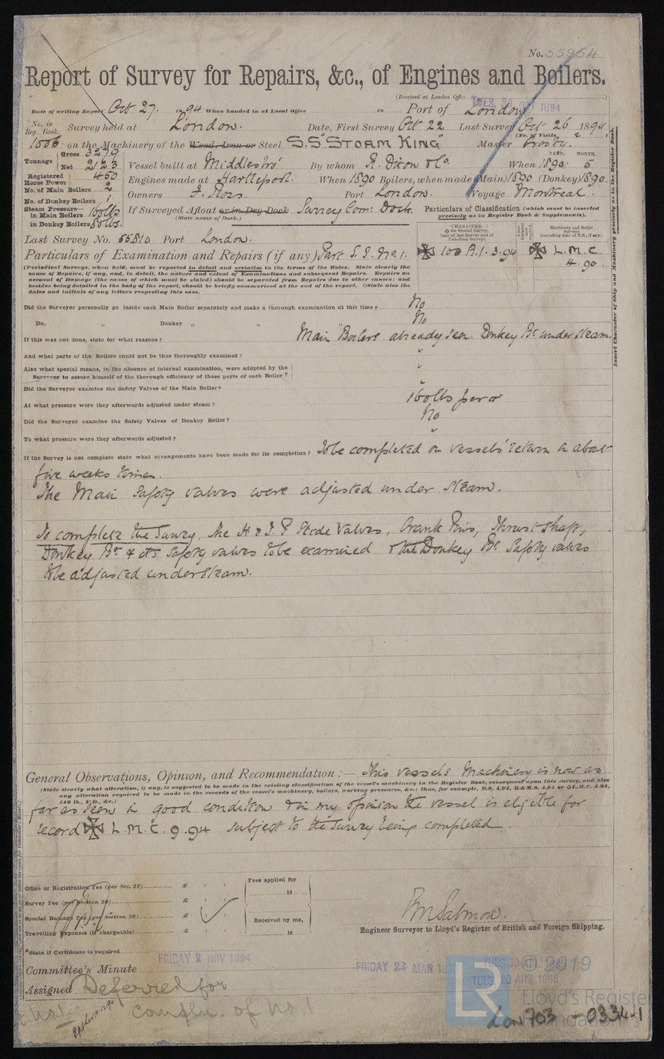 No. 55954
Report of Survey for Repairs, &c., of Engines and Boilers.
(Received at London Office
TUES. 30 OCT 1894
Date of writing Report Oct 27. 1894 When handed in at Local Office 18 Port of London
No. in Reg. Book. Survey held at London. Date, First Survey Oct 22 Last Survey Oct 26 1894
(No. of Visits, 2)
1006 on the Machinery of the Wood, Iron or Steel S.S. "STORM KING" Master Crosby.
Tonnage Gross 3270
Net 2123
Vessel built at Middlesbro' By whom R. Dixon & Co. When 1890. 5
YEAR. MONTH.
Registered Horse Power 450
Engines made at Hartlepool. When 1890 Boilers, when made (Main) 1890 (Donkey) 1890.
No. of Main Boilers 2
Owners J. Ross. Port London. Voyage Montreal.
No. of Donkey Boilers 1
Steam Pressure—
in Main Boilers 160 lbs
in Donkey Boilers 80 lbs.
If Surveyed Afloat or in Dry Dock Surrey Com. Dock.
(State name of Dock.)
Particulars of Classification (which must be inserted precisely as in Register Book & Supplements).
Last Survey No. 55810 Port London.
Particulars of Examination and Repairs (if any) Part S.S. No. 1.
✠ 100 A.1. 3.94 ✠ L.M.C. 4.90
(Periodical Surveys, when held, must be reported in detail and seriatim in the terms of the Rules. State clearly the
Did the Surveyor personally go inside each Main Boiler separately and make a thorough examination at this time? No
Do. Donkey " " " No
If this was not done, state for what reasons? Main Boilers already seen Donkey Br. under steam.
And what parts of the Boilers could not be thus thoroughly examined? "
Also what special means, in the absence of internal examination, were adopted by the
Surveyor to assure himself of the thorough efficiency of those parts of each Boiler? "
Did the Surveyor examine the Safety Valves of the Main Boiler? "
At what pressure were they afterwards adjusted under steam? 160 lbs per □"
Did the Surveyor examine the Safety Valves of Donkey Boiler? No
To what pressure were they afterwards adjusted? "
If the Survey is not complete state what arrangements have been made for its completion? To be completed on vessels' return in about
five weeks time.
The Main Safety valves were adjusted under steam.
To complete the Survey, the H & I P Slide Valves, Crank Pins, Thrust shaft,
Donkey Br. & its safety valves to be examined & the Donkey Br. Safety valves
to be adjusted under steam.
General Observations, Opinion, and Recommendation:— This vessels Machinery is now as
(State clearly what alteration, if any, is suggested to be made in the existing classification of the vessel's machinery in the Register Book, consequent upon this survey, and also
far as seen in good condition & in my opinion the vessel is eligible for
record ✠ L.M.C. 9.94 subject to the survey being completed.
Office or Registration Fee (per Sec. 27) £
Fees applied for
18
Survey Fee (per Section 28) £
Special Damage Fee (per Section 28) £
Received by me,
Travelling Expenses (if chargeable) £
18
Engineer Surveyor to Lloyd's Register of British and Foreign Shipping.
*State if Certificate is required
Committee's Minute FRIDAY 2 NOV 1894
FRIDAY 22 MAR
Assigned Deferred for
Compln. of No. 1
LR
© 2019
Lloyd's Register
Foundation
Lon 703 - 0334-1